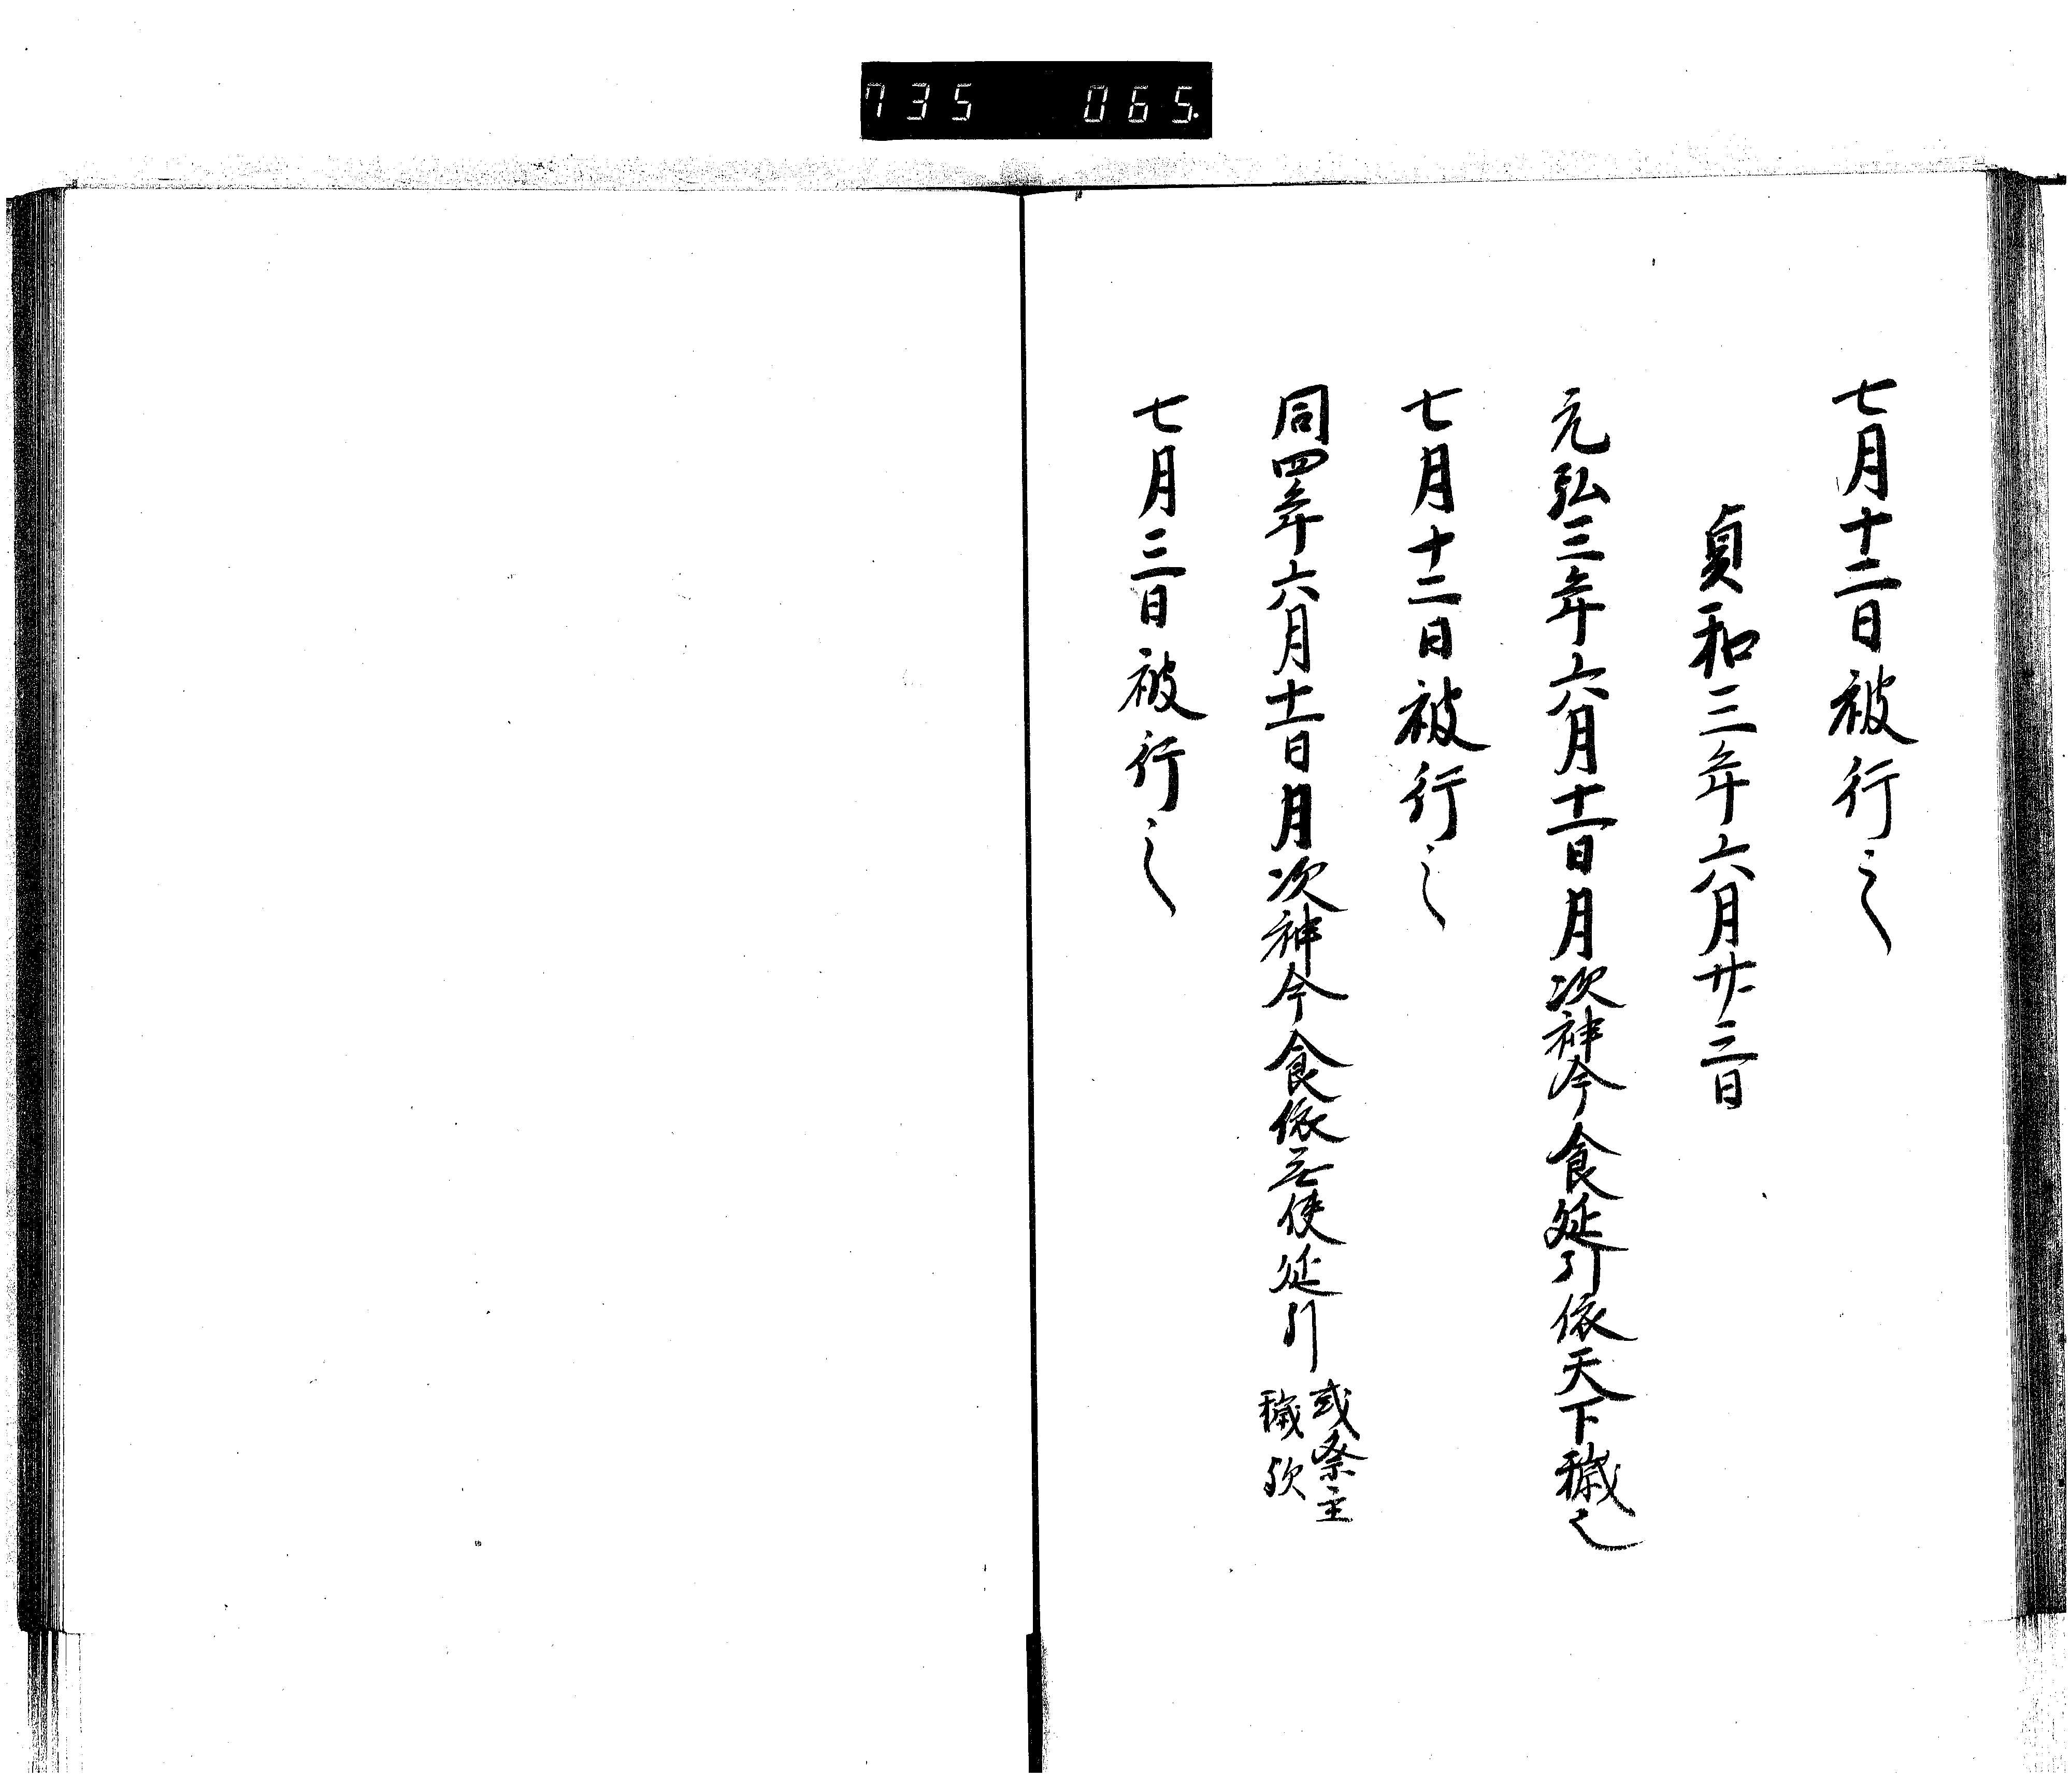 735 065
七月十二日被行之
貞和三年六月廿三日
元弘三年六月十一日月次神今食延引依天下穢也
七月十二日被行之
同四年六月十一日月次神今食依無使延引 或祭主
穢歟
七月三日被行之